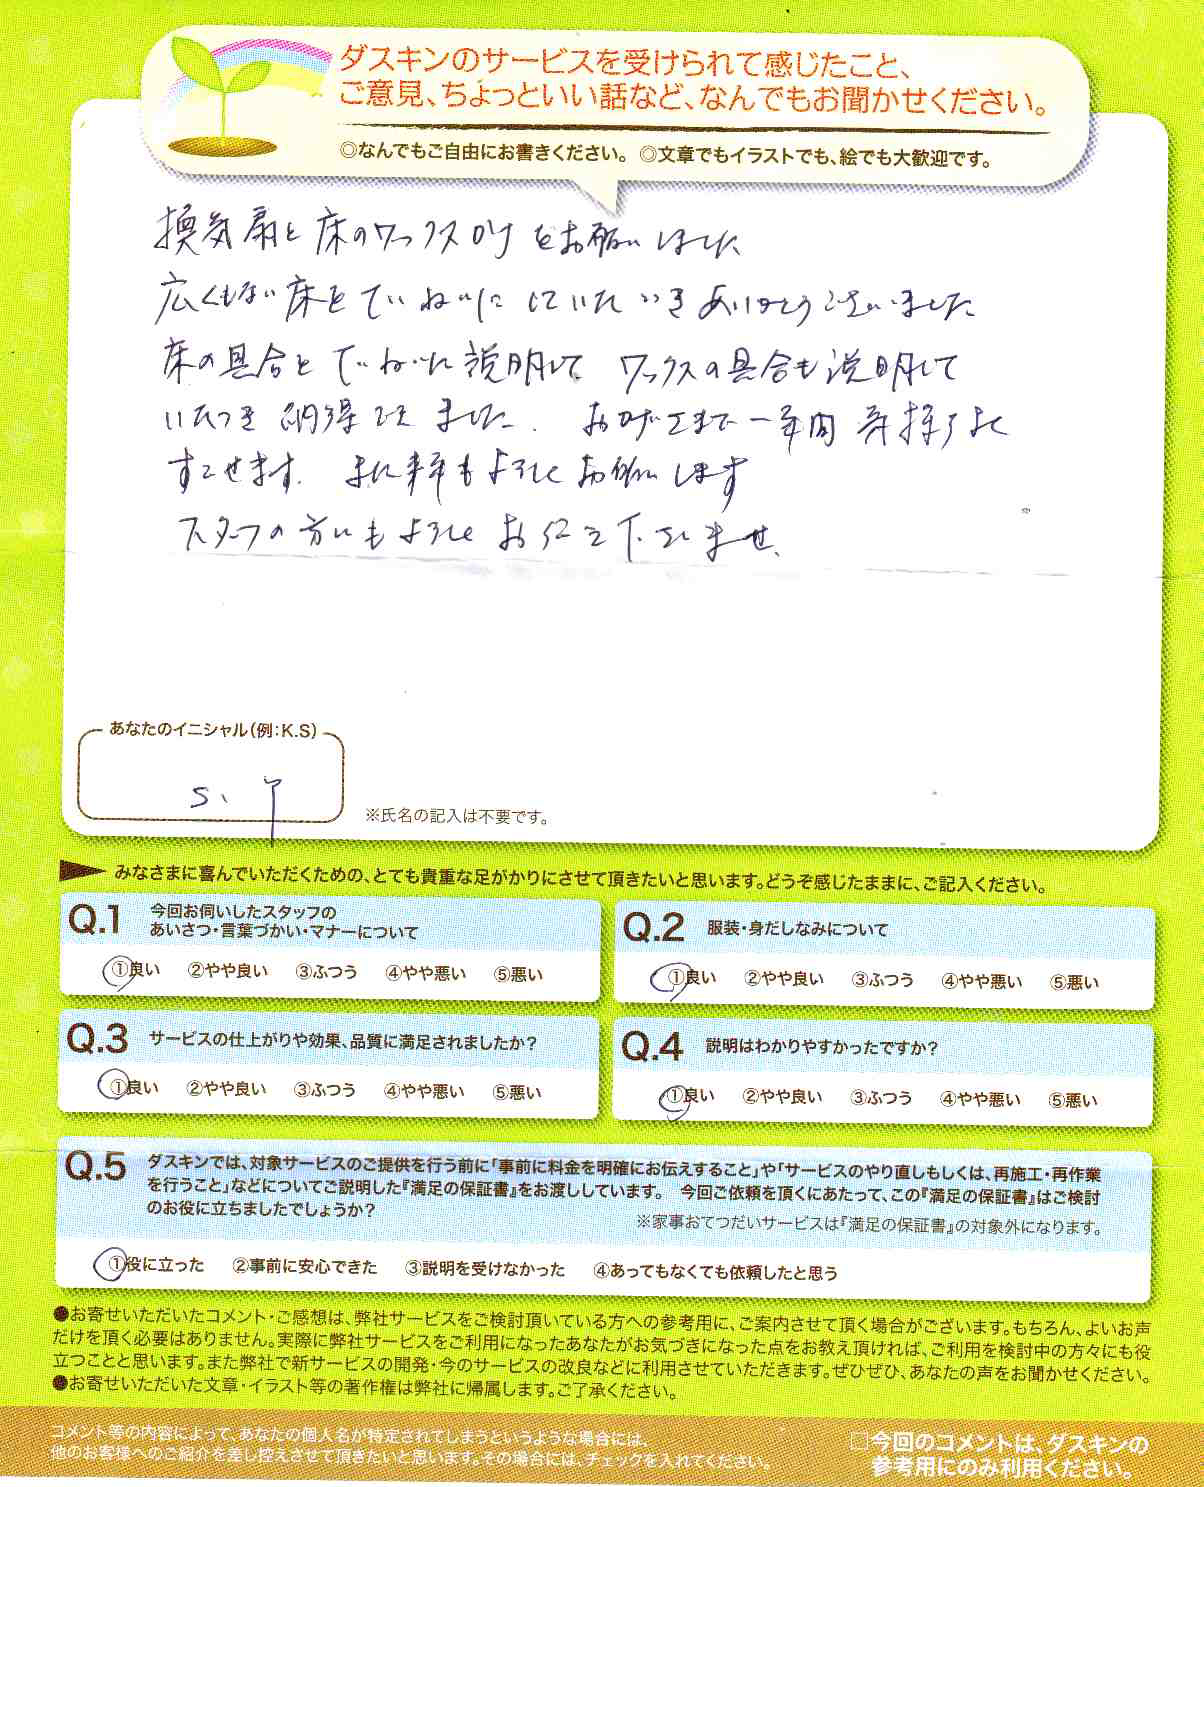 ダスキンのサービスを受けられて感じたこと、
ご意見、ちょっといい話など、なんでもお聞かせください。
◎なんでもご自由にお書きください。 ◎文章でもイラストでも、絵でも大歓迎です。
換気扇と床のワックスがけをお願いしました
広くもない床をていねいにしていただきありがとうございました
床の具合をていねいに説明して ワックスの具合も説明して
いただき納得できました。おかげさまで一年間気持ちよく
すごせます。また来年もよろしくお願いします
スタッフの方にもよろしくお伝え下さいませ。
あなたのイニシャル(例:K.S)
S.Y
※氏名の記入は不要です。
みなさまに喜んでいただくための、とても貴重な足がかりにさせて頂きたいと思います。どうぞ感じたままに、ご記入ください。
Q.1 今回お伺いしたスタッフの
あいさつ・言葉づかい・マナーについて
①良い ②やや良い ③ふつう ④やや悪い ⑤悪い
Q.2 服装・身だしなみについて
①良い ②やや良い ③ふつう ④やや悪い ⑤悪い
Q.3 サービスの仕上がりや効果、品質に満足されましたか?
①良い ②やや良い ③ふつう ④やや悪い ⑤悪い
Q.4 説明はわかりやすかったですか?
①良い ②やや良い ③ふつう ④やや悪い ⑤悪い
Q.5 ダスキンでは、対象サービスのご提供を行う前に「事前に料金を明確にお伝えすること」や「サービスのやり直しもしくは、再施工・再作業
を行うこと」などについてご説明した『満足の保証書』をお渡ししています。 今回ご依頼を頂くにあたって、この『満足の保証書』はご検討
のお役に立ちましたでしょうか?
※家事おてつだいサービスは『満足の保証書』の対象外になります。
①役に立った ②事前に安心できた ③説明を受けなかった ④あってもなくても依頼したと思う
●お寄せいただいたコメント・ご感想は、弊社サービスをご検討頂いている方への参考用に、ご案内させて頂く場合がございます。もちろん、よいお声
だけを頂く必要はありません。実際に弊社サービスをご利用になったあなたがお気づきになった点をお教え頂ければ、ご利用を検討中の方々にも役
立つことと思います。また弊社で新サービスの開発・今のサービスの改良などに利用させていただきます。ぜひぜひ、あなたの声をお聞かせください。
●お寄せいただいた文章・イラスト等の著作権は弊社に帰属します。ご了承ください。
コメント等の内容によって、あなたの個人名が特定されてしまうというような場合には、
他のお客様へのご紹介を差し控えさせて頂きたいと思います。その場合には、チェックを入れてください。
□今回のコメントは、ダスキンの
参考用にのみ利用ください。